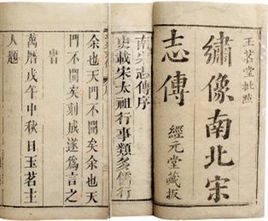 玉茗堂批點
繡像南北宋
志傳
經元堂藏板
南宋志傳序
史載宋太祖行事類多儒行
余也天門不聞
門不聞矣刻成遂為言之
旹
萬曆戊午中秋日玉茗主
人題